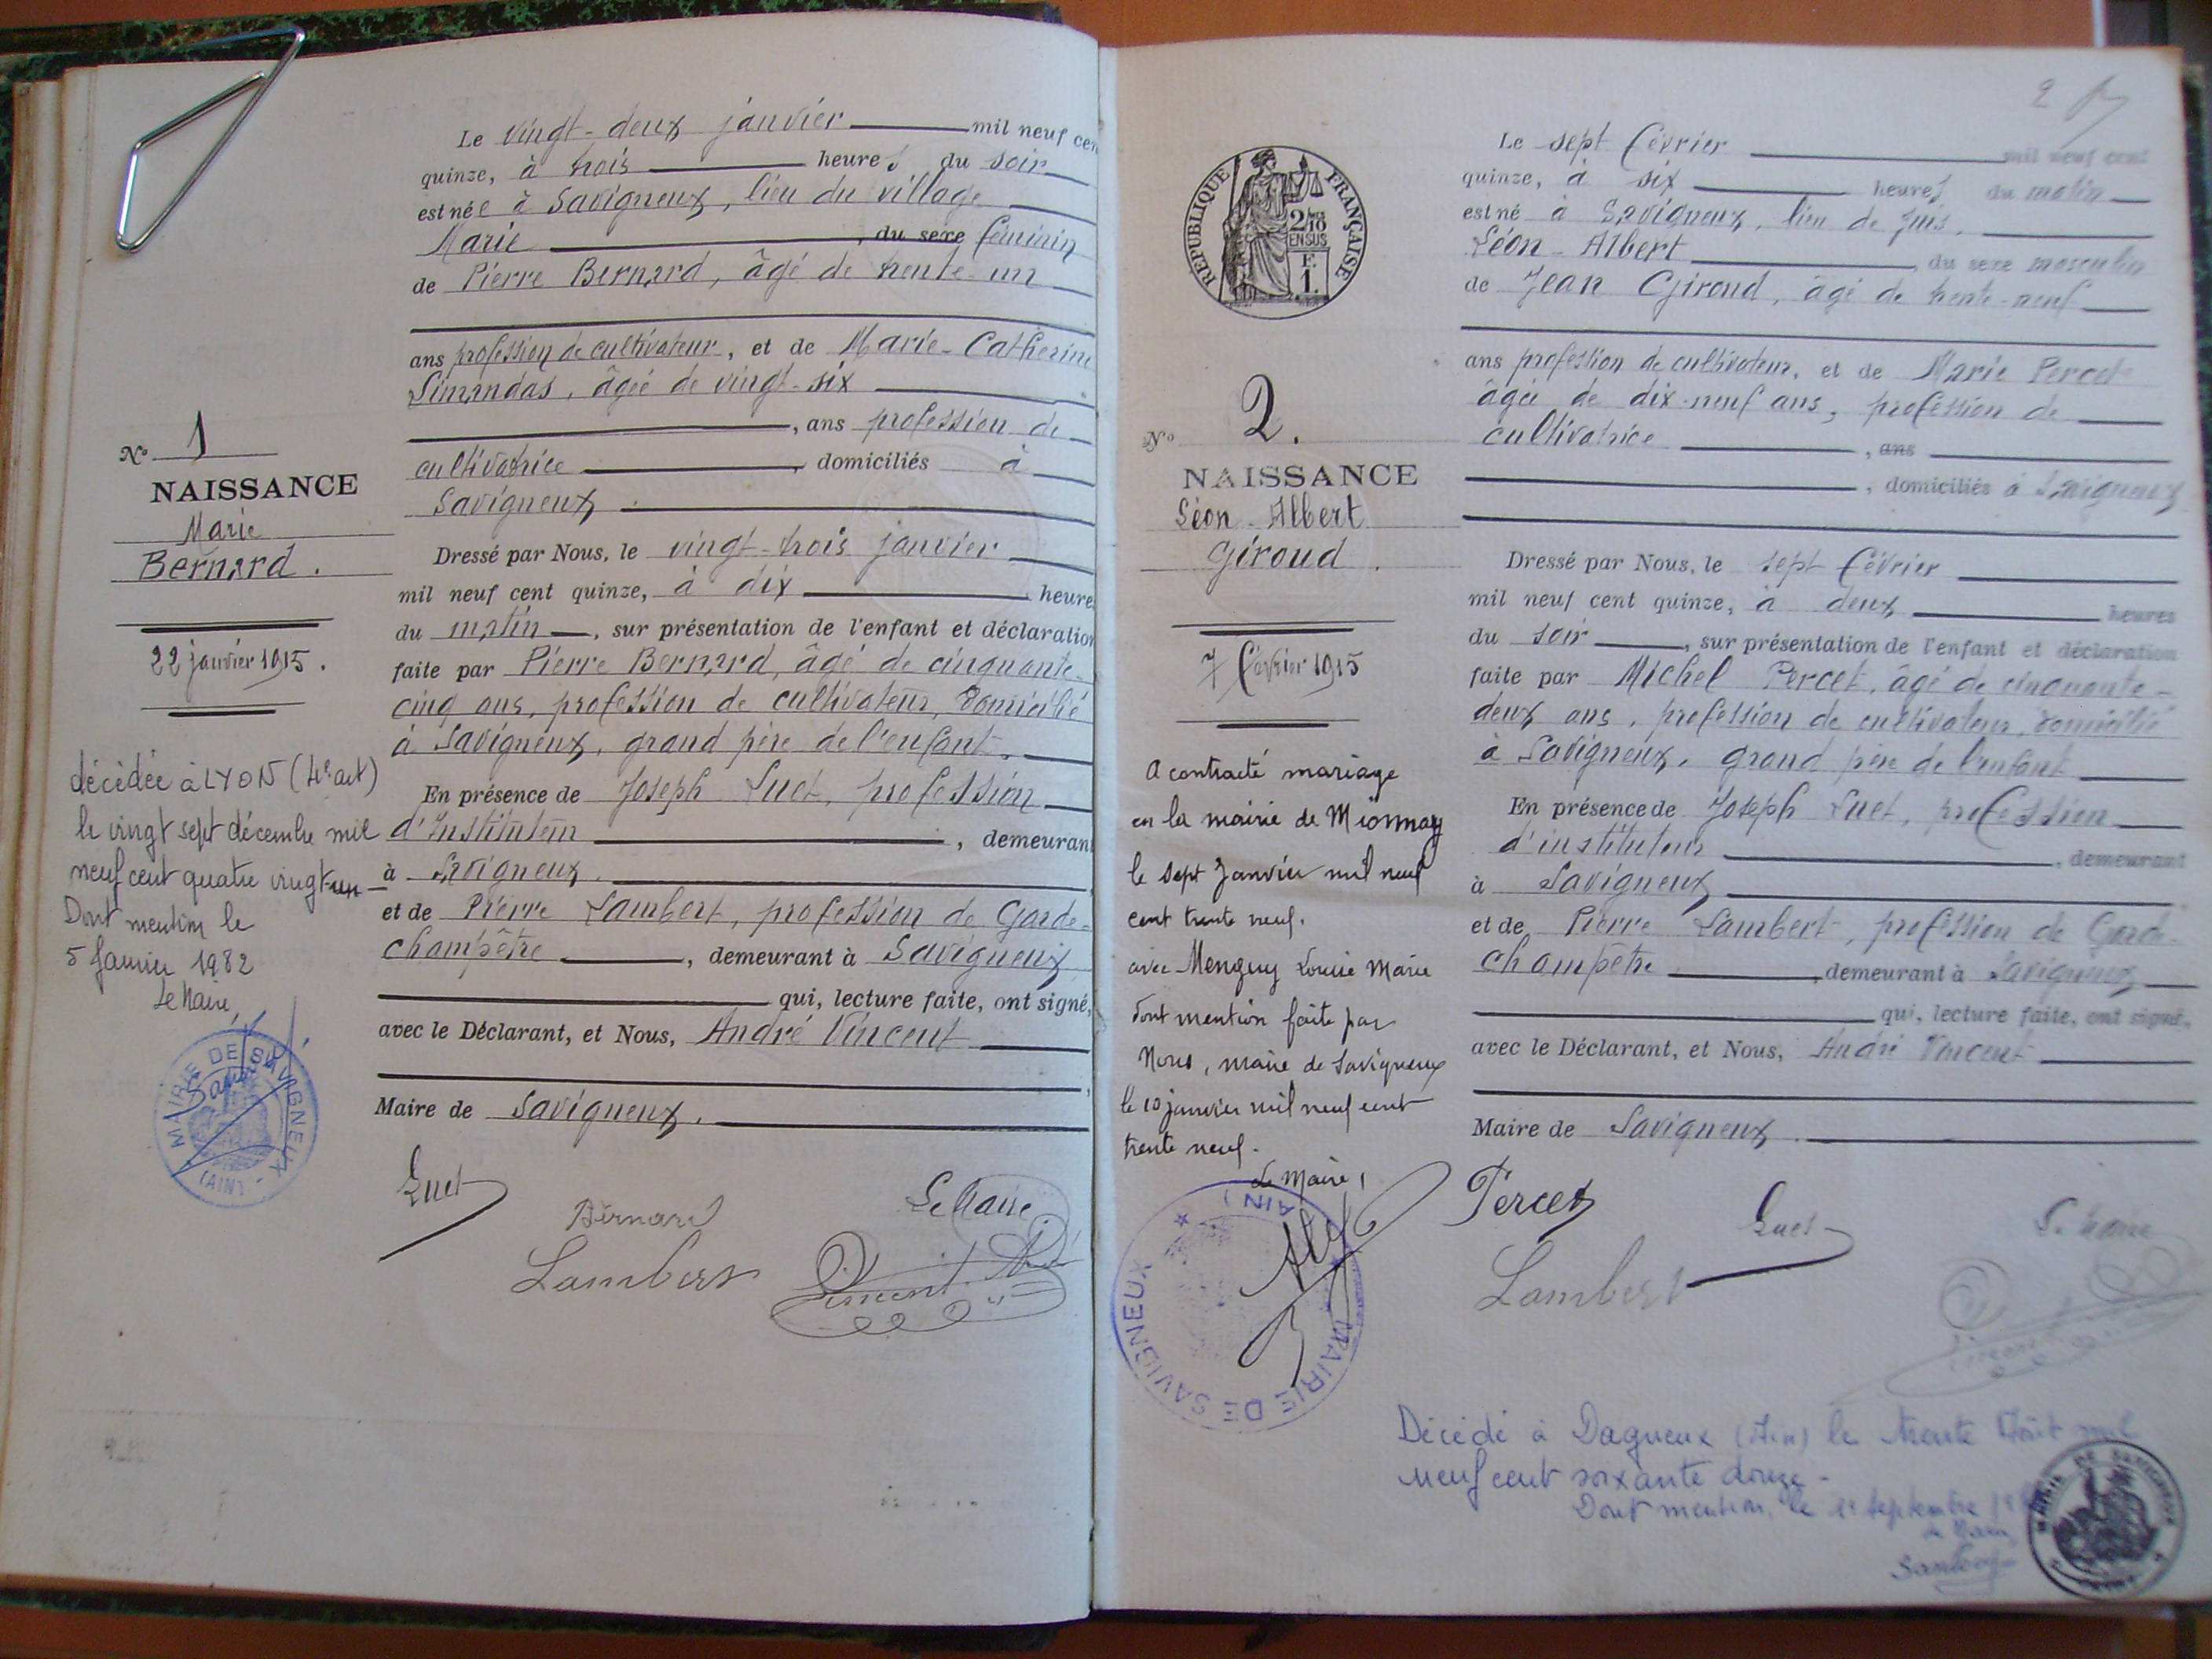 Le vingt-deux janvier mil neuf cen
quinze, à trois heures du soir
est née à Savigneux, lieu du village
Marie, du sexe féminin
de Pierre Bernard, âgé de trente-un
ans profession de cultivateur, et de Marie-Catherine
Simandas, âgée de vingt-six
, ans profession de
cultivatrice, domiciliés à
Savigneux.
Dressé par Nous, le vingt-trois janvier
mil neuf cent quinze, à dix heures
du matin, sur présentation de l'enfant et déclaration
faite par Pierre Bernard, âgé de cinquante-
cinq ans, profession de cultivateur, domicilié
à Savigneux, grand père de l'enfant.
En présence de Joseph Luet, profession
d'Instituteur, demeurant
à Savigneux.
et de Pierre Lambert, profession de Garde-
champêtre, demeurant à Savigneux
qui, lecture faite, ont signé,
avec le Déclarant, et Nous, André Vincent
Maire de Savigneux.
Luet
Bernard
Le Maire
Lambert
Vincent
No 1
NAISSANCE
Marie
Bernard.
22 janvier 1915.
décédée à LYON (4e art)
le vingt sept décembre mil
neuf cent quatre vingt-un
Dont mention le
5 Janvier 1982
Le Maire,
MAIRIE DE SAVIGNEUX
(AIN)
2
RÉPUBLIQUE FRANÇAISE
2/10
EN SUS
F.
1.
No 2.
NAISSANCE
Léon-Albert
Giroud.
7 février 1915
A contracté mariage
en la mairie de Mionnay
le sept Janvier mil neuf
cent trente neuf.
avec Menguy Louise Marie
dont mention faite par
Nous, maire de Savigneux
le 10 janvier mil neuf cent
trente neuf.
Le Maire,
MAIRIE DE SAVIGNEUX
(AIN)
Le sept février mil neuf cent
quinze, à six heures du matin
est né à Savigneux, lieu de Juis,
Léon-Albert, du sexe masculin
de Jean Giroud, âgé de trente-neuf
ans profession de cultivateur, et de Marie Percet
âgée de dix-neuf ans, profession de
cultivatrice, ans
, domiciliés à Savigneux
Dressé par Nous, le sept février
mil neuf cent quinze, à deux heures
du soir, sur présentation de l'enfant et déclaration
faite par Michel Percet, âgé de cinquante-
deux ans, profession de cultivateur, domicilié
à Savigneux, grand père de l'enfant
En présence de Joseph Luet, profession
d'instituteur, demeurant
à Savigneux
et de Pierre Lambert, profession de Garde-
champêtre, demeurant à Savigneux
qui, lecture faite, ont signé,
avec le Déclarant, et Nous, André Vincent
Maire de Savigneux.
Percet
Luet
Le Maire
Lambert
Vincent
Décédé à Dagneux (Ain) le trente Août mil
neuf cent soixante douze -
Dont mention, le 1er Septembre
Le Maire,
MAIRIE DE SAVIGNEUX